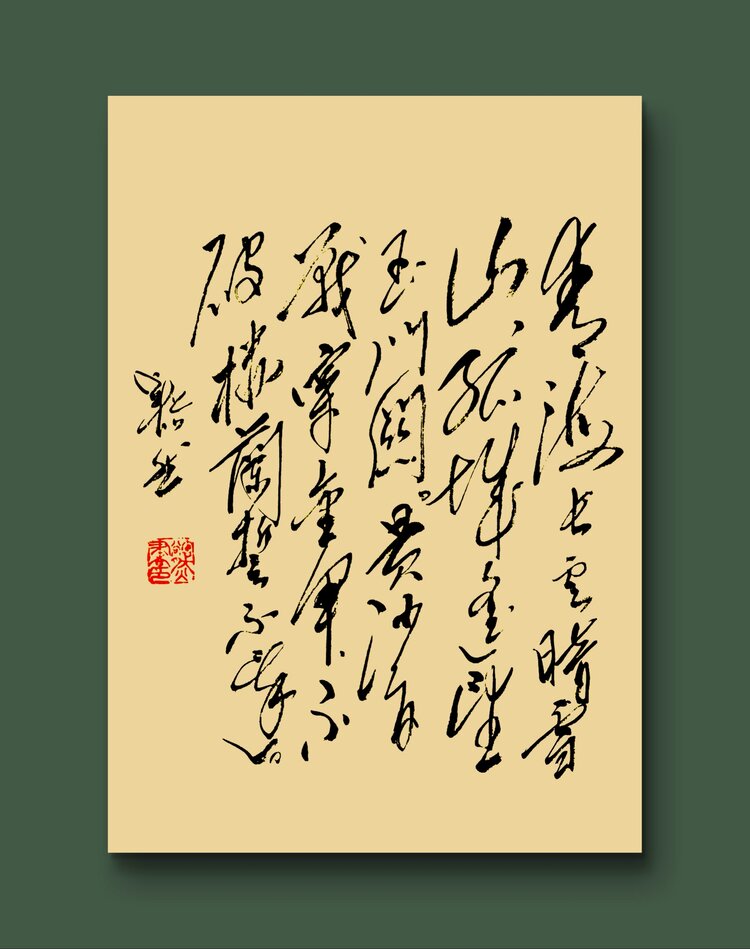 青海长云暗雪
山、孤城遥望
玉门关。黄沙百
战穿金甲、不
破楼兰誓不还